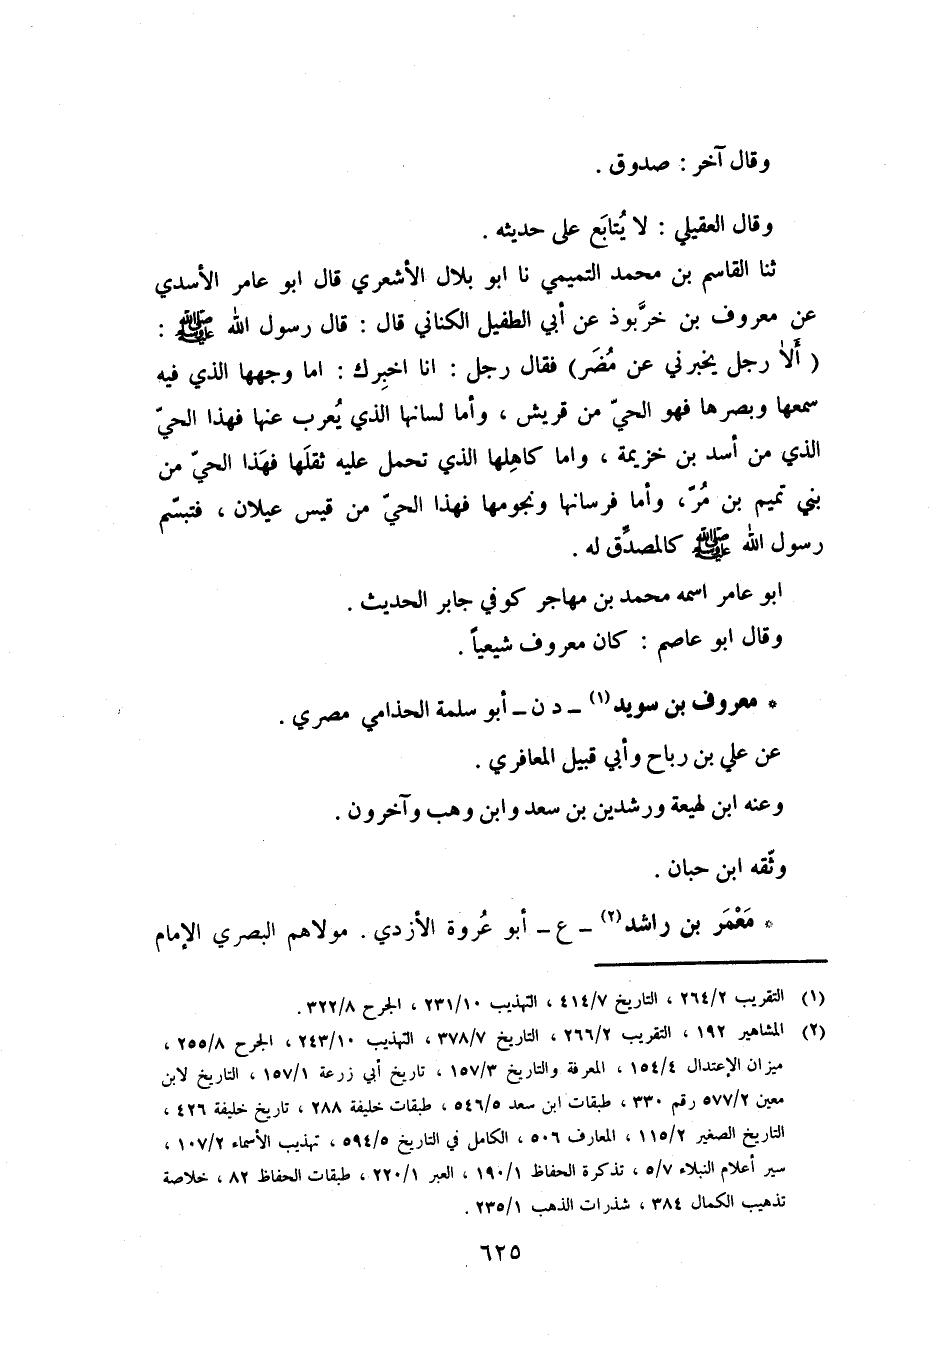 وقال آخر : صدوق .
وقال العقيلي : لا يُتابَع على حديثه .
ثنا القاسم بن محمد التميمي نا ابو بلال الأشعري قال ابو عامر الأسدي
عن معروف بن خرَّبوذ عن أبي الطفيل الكناني قال : قال رسول الله ﷺ :
( أَلاٰ رجل يخبرني عن مُضَر) فقال رجل : انا اخبِرك : اما وجهها الذي فيه
سمعها وبصرها فهو الحيّ من قريش ، وأما لسانها الذي يُعرب عنها فهذا الحيّ
الذي من أسد بن خزيمة ، واما كاهِلها الذي تحمل عليه ثقلَها فهَذا الحيّ من
بني تميم بن مُرّ، وأما فرسانها ونجومها فهذا الحيّ من قيس عيلان ، فتبسّم
رسول الله ﷺ كالمصدِّق له .
ابو عامر اسمه محمد بن مهاجر كوفي جابر الحديث .
وقال ابو عاصم : كان معروف شيعياً .
* معروف بن سويد(١) ـ د ن ـ أبو سلمة الحذامي مصري .
عن علي بن رباح وأبي قبيل المعافري .
وعنه ابن لهيعة ورشدين بن سعد وابن وهب وآخرون .
وثّقه ابن حبان .
* مَعْمَر بن راشد(٢) ـ ع ـ أبو عُروة الأزدي . مولاهم البصري الإمام
(١) التقريب ٢٦٤/٢ ، التاريخ ٤١٤/٧ ، التهذيب ٢٣١/١٠ ، الجرح ٣٢٢/٨ .
(٢) المشاهير ١٩٢ ، التقريب ٢٦٦/٢ ، التاريخ ٣٧٨/٧ ، التهذيب ٢٤٣/١٠ ، الجرح ٢٥٥/٨ ،
ميزان الإعتدال ١٥٤/٤ ، المعرفة والتاريخ ١٥٧/٣ ، تاريخ أبي زرعة ١٥٧/١ ، التاريخ لابن
معين ٥٧٧/٢ رقم ٣٣٠ ، طبقات ابن سعد ٥٤٦/٥ ، طبقات خليفة ٢٨٨ ، تاريخ خليفة ٤٢٦ ،
التاريخ الصغير ١١٥/٢ ، المعارف ٥٠٦ ، الكامل في التاريخ ٥٩٤/٥ ، تهذيب الأسماء ١٠٧/٢ ،
سير أعلام النبلاء ٥/٧ ، تذكرة الحفاظ ١٩٠/١ ، العبر ٢٢٠/١ ، طبقات الحفاظ ٨٢ ، خلاصة
تذهيب الكمال ٣٨٤ ، شذرات الذهب ٢٣٥/١ .
٦٢٥